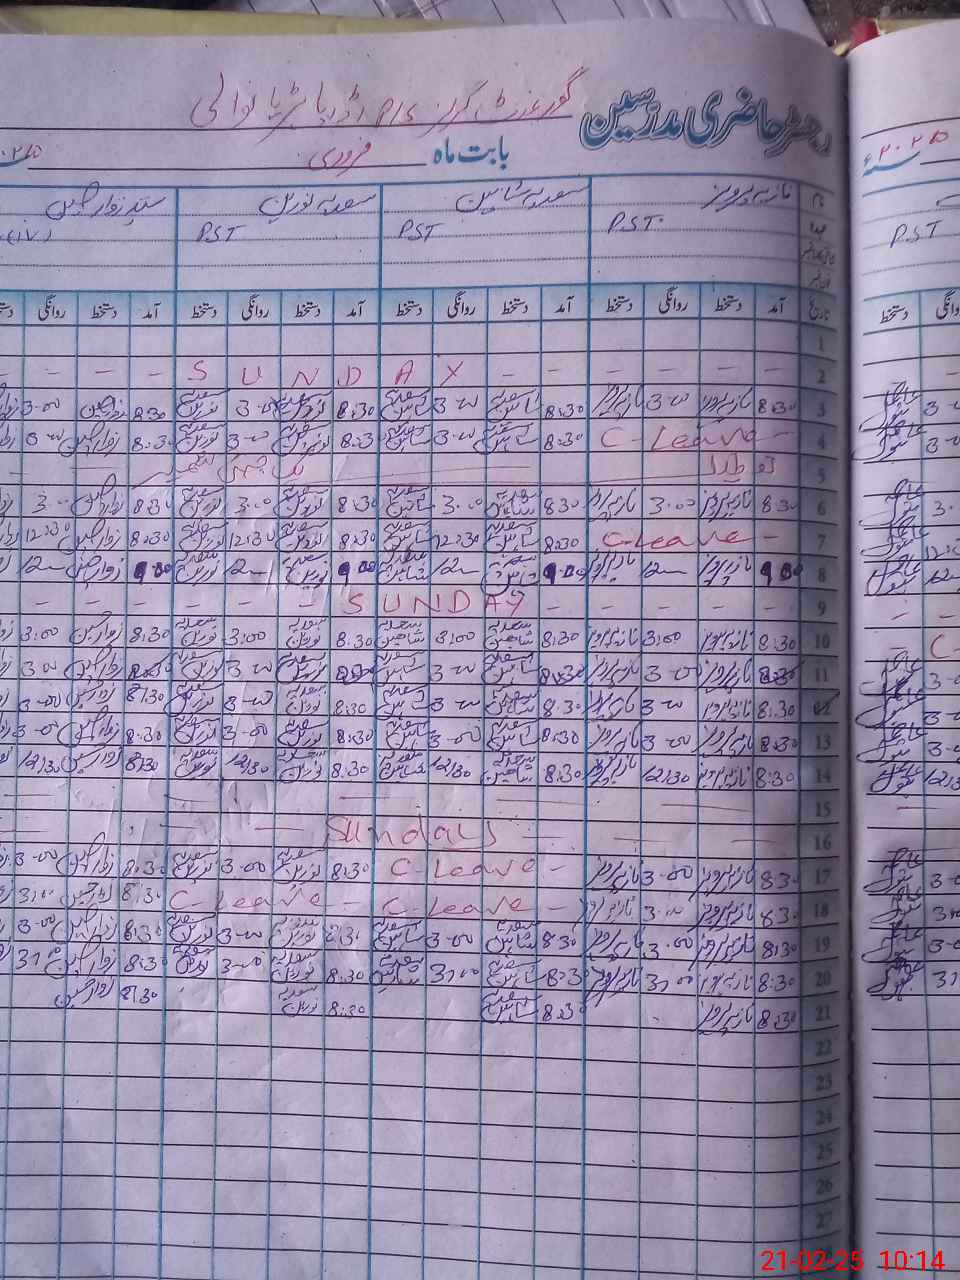 رجسٹر حاضری مدرسین گورنمنٹ گرلز P/S
بابت ماہ فروری ۲۰۲۵
۲۰۲۵ء
نام نازیہ پرویز سعدیہ شاہین سعدیہ نورین سید زوار حسین
عہدہ PST. PST PST
PST
تاریخ آمد دستخط روانگی دستخط آمد دستخط روانگی دستخط آمد دستخط روانگی دستخط آمد دستخط روانگی دستخط
1
2 - - - - S U N D A Y - - -
3 8:30 نازیہ پرویز 3-00 نازیہ پرویز 8:30 سعدیہ شاہین 3-00 سعدیہ شاہین 8:30 سعدیہ نورین 3-00 سعدیہ نورین 8:30 زوار حسین 3-00
4 C-Leave - 8:30 سعدیہ شاہین 3-00 سعدیہ شاہین 8:30 سعدیہ نورین 3-00 سعدیہ نورین 8:30 زوار حسین 3-00
5
6 8:30 نازیہ پرویز 3:00 نازیہ پرویز 8:30 سعدیہ شاہین 3:00 سعدیہ شاہین 8:30 سعدیہ نورین 3:00 سعدیہ نورین 8:30 زوار حسین 3:00
7 C-Leave - 8:30 سعدیہ شاہین 12:30 سعدیہ شاہین 8:30 سعدیہ نورین 12:30 سعدیہ نورین 8:30 زوار حسین 12:30
8 9:00 نازیہ پرویز 12 نازیہ پرویز 9:00 سعدیہ شاہین 12 سعدیہ شاہین 9:00 سعدیہ نورین 12 سعدیہ نورین 9:00 زوار حسین 12
9 - - - - - - S U N D A Y - - - - -
10 8:30 نازیہ پرویز 3:00 نازیہ پرویز 8:30 سعدیہ شاہین 3:00 سعدیہ شاہین 8:30 سعدیہ نورین 3:00 سعدیہ نورین 8:30 زوار حسین 3:00
11 8:30 نازیہ پرویز 3-00 نازیہ پرویز 8:30 سعدیہ شاہین 3-00 سعدیہ شاہین 8:30 سعدیہ نورین 3-00 سعدیہ نورین 8:30 زوار حسین 3-00
12 8:30 نازیہ پرویز 3-00 نازیہ پرویز 8:30 سعدیہ شاہین 3-00 سعدیہ شاہین 8:30 سعدیہ نورین 3-00 سعدیہ نورین 8:30 زوار حسین 3-00
13 8:30 نازیہ پرویز 3-00 نازیہ پرویز 8:30 سعدیہ شاہین 3-00 سعدیہ شاہین 8:30 سعدیہ نورین 3-00 سعدیہ نورین 8:30 زوار حسین 3-00
14 8:30 نازیہ پرویز 12/30 نازیہ پرویز 8:30 سعدیہ شاہین 12/30 سعدیہ شاہین 8:30 سعدیہ نورین 12/30 سعدیہ نورین 8:30 زوار حسین 12/30
15
16 Sunday
17 8:30 نازیہ پرویز 3-00 نازیہ پرویز C-Leave - 8:30 سعدیہ نورین 3-00 سعدیہ نورین 8:30 زوار حسین 3-00
18 8:30 نازیہ پرویز 3:00 نازیہ پرویز C-Leave - C-Leave - 8:30 زوار حسین 3:00
19 8:30 نازیہ پرویز 3:00 نازیہ پرویز 8:30 سعدیہ شاہین 3-00 سعدیہ شاہین 8:30 سعدیہ نورین 3-00 سعدیہ نورین 8:30 زوار حسین 3-00
20 8:30 نازیہ پرویز 3:00 نازیہ پرویز 8:30 سعدیہ شاہین 3:00 سعدیہ شاہین 8:30 سعدیہ نورین 3-00 سعدیہ نورین 8:30 زوار حسین 3:00
21 8:30 نازیہ پرویز 8:30 سعدیہ شاہین 8:30 سعدیہ نورین 8:30 زوار حسین
22
23
24
25
26
27
21-02-25 10:14